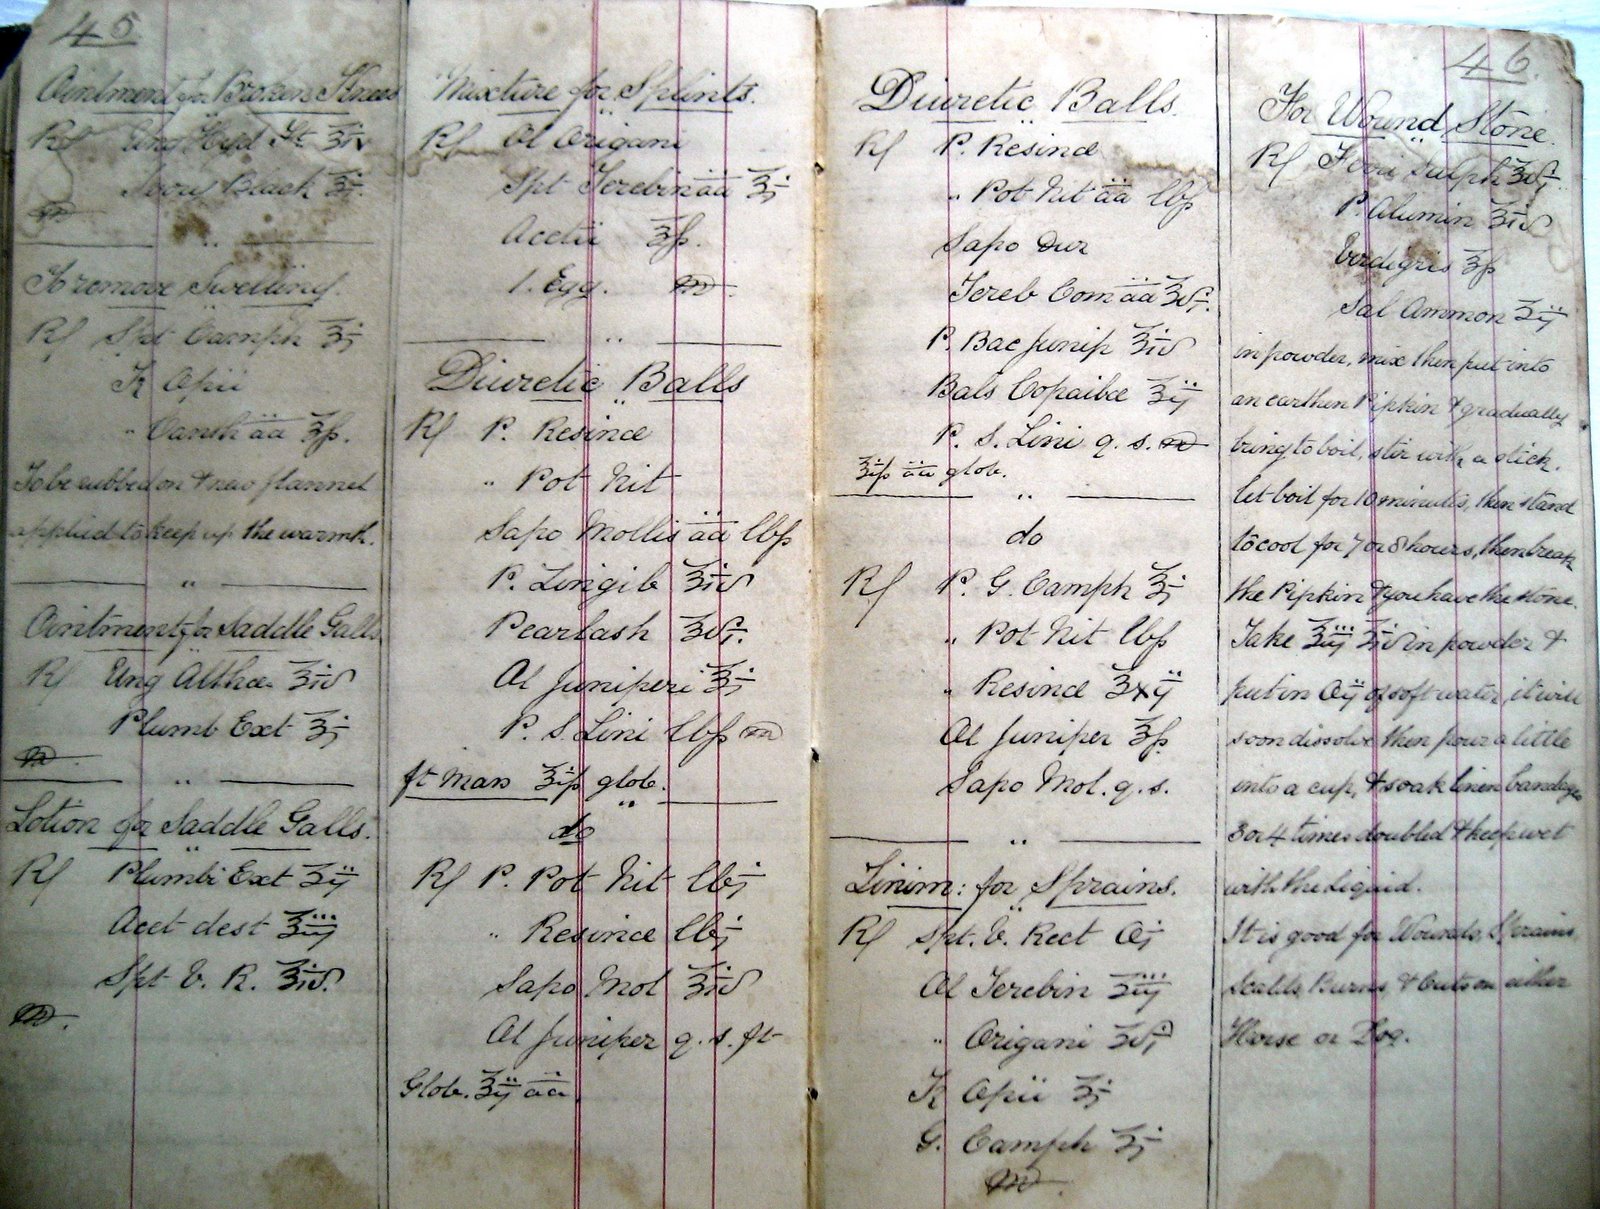 45
Ointment for Broken Knees
Rx Ung Hyd Ft ℥iv
Ivory Black ℥j.
m
To remove Swelling.
Rx Spt Camph ℥j
Tr Opii
" Canth āā ℥ß.
To be rubbed on & new flannel
applied to keep up the warmth.
Ointment for Saddle Galls
Rx Ung Althæ ℥iv
Plumb Ext ℥j
m
Lotion for Saddle Galls.
Rx Plumbi Ext ℥ij
Acet dest ℥iij
Spt V. R. ℥iv.
m.
Mixture for Splints.
Rx Ol Origani
Spt Terebin āā ℥j
Acetii ℥ß.
1. Egg. m.
Diuretic Balls
Rx P. Resinæ
" Pot Nit
Sapo Mollis āā lbß
P. Zingib ℥iv
Pearlash ℥vj.
Ol Juniperi ℥j
P. S. Lini lbß m
ft Mass ℥iß glob.
do
Rx P. Pot Nit lbj
" Resinæ lbj
Sapo Mol ℥iv
Ol Juniper q. s. ft
Glob. ℥ij āā
Diuretic Balls.
Rx P. Resinæ
" Pot Nit āā lbß
Sapo Dur
Tereb Com āā ℥vj.
P. Bac Junip ℥iv
Bals Copaibæ ℥ij
P. S. Lini q. s. m
℥iß āā glob.
do
Rx P. G. Camph ℥j
" Pot Nit lbß
" Resinæ ℥xij
Ol Juniper ℥ß
Sapo Mol. q. s.
Linim: for Sprains.
Rx Spt. V. Rect Oj
Ol Terebin ℥iij
" Origani ℥vj
Tr Opii ℥j
G. Camph ℥j
m.
46.
For Wound Stone.
Rx Ferri Sulph ℥vj.
P. Alumin ℥iv
Verdigris ℥ß
Sal Ammon ℥ij
in powder, mix then put into
an earthen Pipkin & gradually
bring to boil, stir with a stick.
let boil for 10 minutes, then stand
to cool for 7 or 8 hours, then break
the Pipkin & you have the stone.
Take ℥iij ℥iv in powder &
put in Oij of soft water, it will
soon dissolve then pour a little
into a cup, & soak linen bandages
3 or 4 times doubled & keep wet
with the Liquid.
It is good for Wounds, Sprains,
Scalds, Burns, & Cuts on either
Horse or Dog.